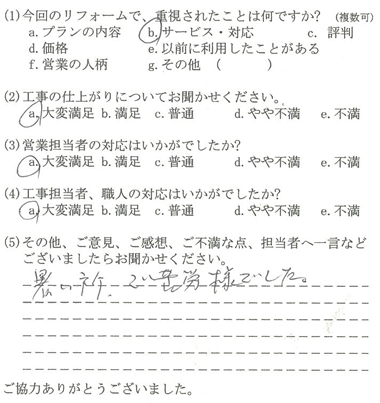 (1)今回のリフォームで、重視されたことは何ですか? (複数可)
a.プランの内容 b.サービス・対応 c. 評判
d.価格 e.以前に利用したことがある
f.営業の人柄 g.その他 ( )
(2)工事の仕上がりについてお聞かせください。
a.大変満足 b.満足 c.普通 d.やや不満 e.不満
(3)営業担当者の対応はいかがでしたか?
a.大変満足 b.満足 c.普通 d.やや不満 e.不満
(4)工事担当者、職人の対応はいかがでしたか?
a.大変満足 b.満足 c.普通 d.やや不満 e.不満
(5)その他、ご意見、ご感想、ご不満な点、担当者へ一言など
ございましたらお聞かせください。
暑い中、ご苦労様でした。
ご協力ありがとうございました。